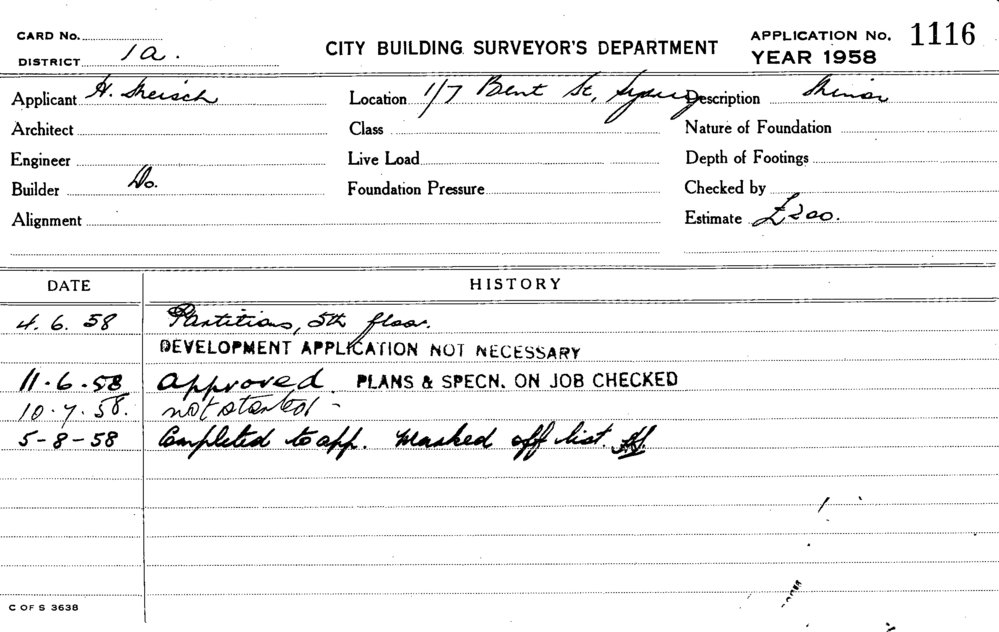 CARD No.
DISTRICT 1a.
CITY BUILDING SURVEYOR'S DEPARTMENT
APPLICATION No. 1116
YEAR 1958
Applicant H.
Location 1/7 Bent St, Sydney
Description Minor
Architect
Class
Nature of Foundation
Engineer
Live Load
Depth of Footings
Builder Do.
Foundation Pressure
Checked by
Alignment
Estimate £200.
DATE
HISTORY
4. 6. 58 Partitions, 5th floor.
DEVELOPMENT APPLICATION NOT NECESSARY
11-6-58 approved PLANS & SPECN. ON JOB CHECKED
10.7.58. not started -
5-8-58 Completed to app. Marked off list.
C OF S 3638